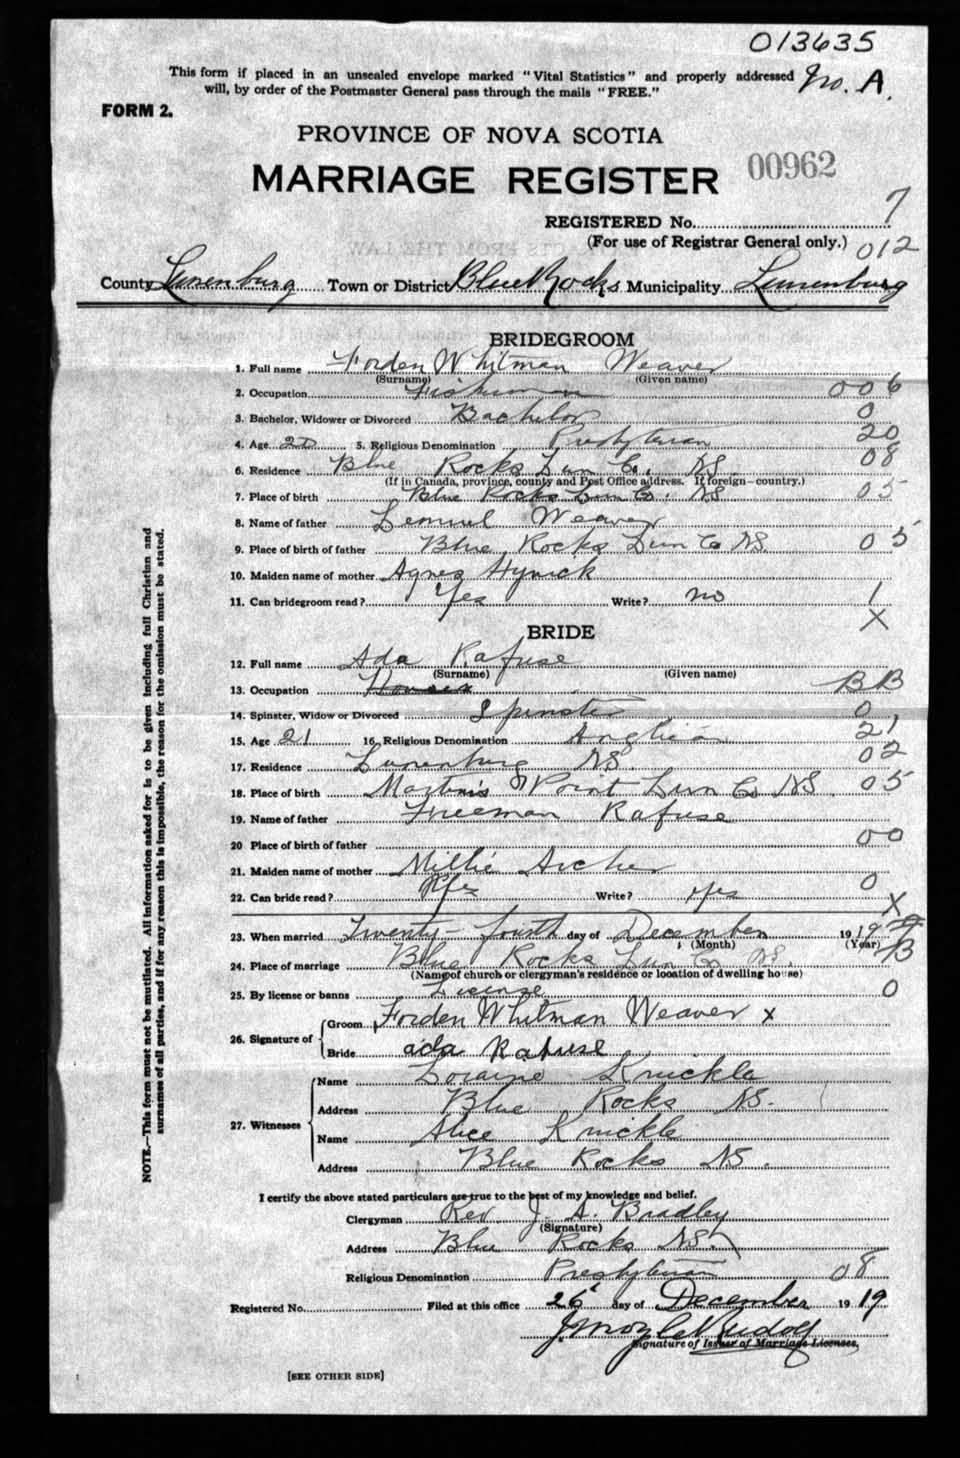 013635
This form if placed in an unsealed envelope marked "Vital Statistics" and properly addressed No. A.
will, by order of the Postmaster General pass through the mails "FREE."
FORM 2.
PROVINCE OF NOVA SCOTIA
MARRIAGE REGISTER 00962
REGISTERED No. 7
(For use of Registrar General only.) 012
County Lunenburg Town or District Blue Rocks Municipality Lunenburg
BRIDEGROOM
1. Full name Forden Whitman Weaver
(Surname) (Given name)
2. Occupation Fisherman 006
3. Bachelor, Widower or Divorced Bachelor 0
4. Age 20 5. Religious Denomination Presbyterian 20
6. Residence Blue Rocks Lun Co. NS. 08
(If in Canada, province, county and Post Office address. If foreign—country.)
7. Place of birth Blue Rocks Lun Co. NS 05
8. Name of father Lemuel Weaver
9. Place of birth of father Blue Rocks Lun Co NS. 05
10. Maiden name of mother Agnes
11. Can bridegroom read? Yes Write? no 1
X
BRIDE
12. Full name Ada Rafuse
(Surname) (Given name)
13. Occupation BB
14. Spinster, Widow or Divorced Spinster 0
15. Age 21 16. Religious Denomination Anglican 21
17. Residence Lunenburg NS. 02
18. Place of birth Martins Point Lun Co NS. 05
19. Name of father Freeman Rafuse
20 Place of birth of father 00
21. Maiden name of mother Millie Archer
22. Can bride read? Yes Write? yes 0
X
23. When married Twenty-fourth day of December 1919
(Month) (Year)
24. Place of marriage Blue Rocks Lun Co NS. B
(Name of church or clergyman's residence or location of dwelling house)
25. By license or banns License 0
26. Signature of Groom Forden Whitman Weaver x
Bride ada Rafuse
27. Witnesses Name Loraine Knickle
Address Blue Rocks NS.
Name Alice Knickle
Address Blue Rocks NS.
I certify the above stated particulars are true to the best of my knowledge and belief.
Clergyman Rev. J. A. Bradley
(Signature)
Address Blue Rocks NS.
Religious Denomination Presbyterian 08
Registered No. Filed at this office 26 day of December 1919
Signature of Issuer of Marriage Licenses.
[SEE OTHER SIDE]
NOTE.—This form must not be mutilated. All information asked for is to be given including full Christian and
surnames of all parties, and if for any reason this is impossible, the reason for the omission must be stated.